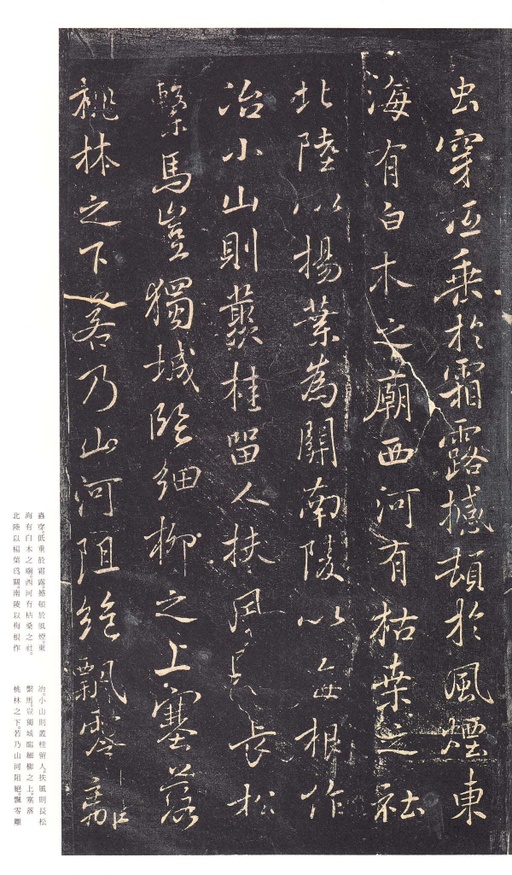 虫穿㢠垂於霜露撼頓於風煙東
海有白木之廟西河有枯桒之社
北陸以揚葉為關南陵以每根作
冶小山則叢桂留人扶風長松
繫馬豈獨城臨細柳之上塞落
桃林之下若乃山河阻絶飄零離
蟲穿低垂於霜露撼頓於風煙東
海有白木之廟西河有枯桑之社
北陸以楊葉爲關南陵以梅根作
冶小山則叢桂留人扶風則長松
繫馬豈獨城臨細柳之上塞落
桃林之下若乃山河阻絶飄零離